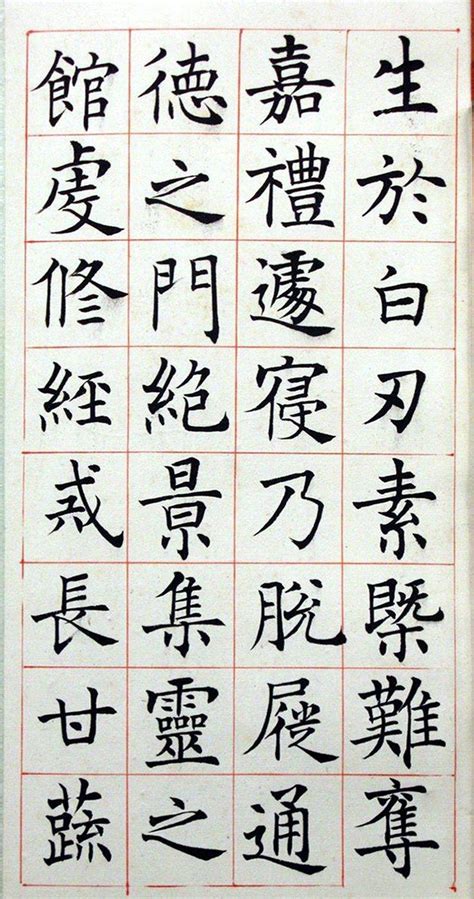 生於白刃素槩難奪
嘉禮遽寑乃脫屣通
徳之門絶景集靈之
館虔修經戒長甘蔬